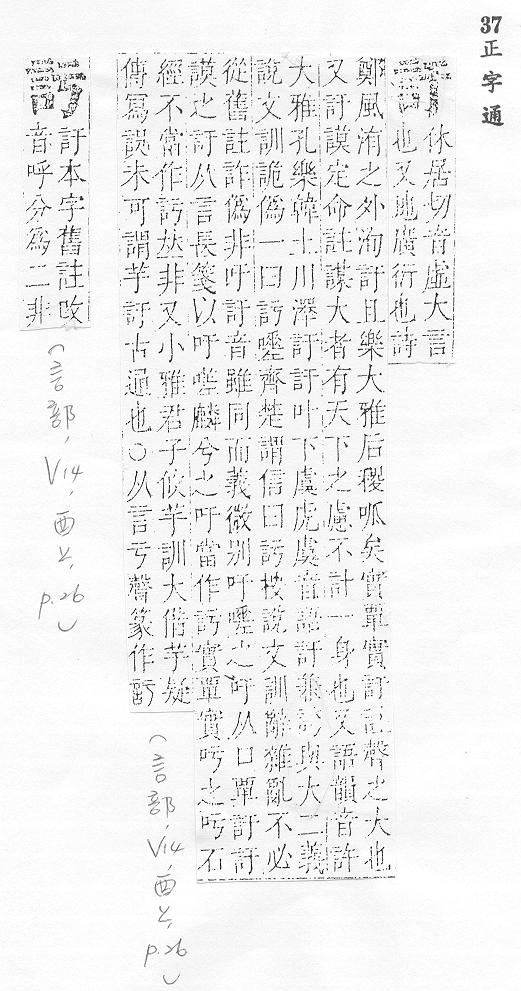 37正字通
訏
休居切音虛大言
也又地廣衍也詩
鄭風洧之外洵訏且樂大雅后稷呱矣實覃實訏註聲之大也
又訏謨定命註謀大者有天下之慮不計一身也又語韻音許
大雅孔樂韓土川澤訏訏叶下虞虎虞音語訏兼訏與大二義
說文訓詭偽一曰訏䜈齊楚謂信曰訏按說文訓辭雜亂不必
從舊註詐偽非吁訏音雖同而義微別吁䜈之吁从口覃訏訏
謨之訏从言長箋以吁嗟麟兮之吁當作訏實覃實吁之吁石
經不當作訏𠀤非又小雅君子攸芋訓大偕芋疑
傳寫誤未可謂芋訏古通也○从言亏聲篆作
(言部, V14, 酉上, p.26)
訏本字舊註改
音呼分為二非
(言部, V14, 酉上, p.26)